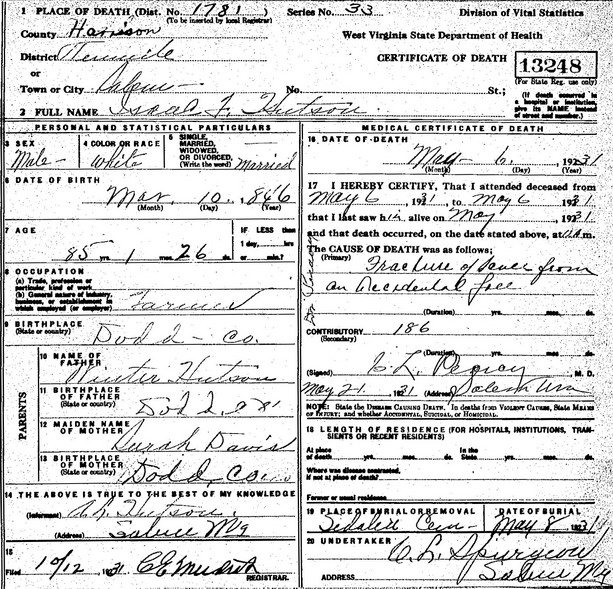 1 PLACE OF DEATH (Dist. No. 1781 Series No. 33 Division of Vital Statistics
(To be inserted by local Registrar)
County Harrison West Virginia State Department of Health
District Tenmile CERTIFICATE OF DEATH 13248
or (For State Reg. use only)
Town or City Salem No. St.; (If death occurred in a hospital or institution, give its NAME instead of street and number.)
2 FULL NAME F. Hutson
PERSONAL AND STATISTICAL PARTICULARS
3 SEX 4 COLOR OR RACE 5 SINGLE, MARRIED, WIDOWED, OR DIVORCED, (Write the word)
Male White Married
6 DATE OF BIRTH
Mar. 10, 1846
(Month) (Day) (Year)
7 AGE IF LESS than
1 day, hrs
85 yrs. 1 mos. 26 ds. or min.?
8 OCCUPATION
(a) Trade, profession or particular kind of work
(b) General nature of industry, business, or establishment in which employed (or employer) Farmer
9 BIRTHPLACE
(State or country) Dodd - Co.
PARENTS
10 NAME OF FATHER Hutson
11 BIRTHPLACE OF FATHER
(State or country) Dodd
12 MAIDEN NAME OF MOTHER Sarah Davis
13 BIRTHPLACE OF MOTHER
(State or country) Dodd Co
14 THE ABOVE IS TRUE TO THE BEST OF MY KNOWLEDGE
(Informant) Hutson
(Address)
15
Filed 10/12 1931 REGISTRAR.
MEDICAL CERTIFICATE OF DEATH
16 DATE OF DEATH
May 6, 1931
(Month) (Day) (Year)
17 I HEREBY CERTIFY, That I attended deceased from
May 6, 1931, to May 6 1931
that I last saw him alive on May 1931
and that death occurred, on the date stated above, at m.
The CAUSE OF DEATH was as follows:
(Primary) Fracture of from
an Accidental
(Duration) yrs. mos. ds.
CONTRIBUTORY 186
(Secondary)
(Duration) yrs. mos. ds.
(Signed) C. L. M. D.
May 21 1931 (Address) Salem
NOTE: State the DISEASE CAUSING DEATH. In deaths from VIOLENT CAUSES, State MEANS OF INJURY; and whether ACCIDENTAL, SUICIDAL, or HOMICIDAL.
18 LENGTH OF RESIDENCE (FOR HOSPITALS, INSTITUTIONS, TRANSIENTS OR RECENT RESIDENTS)
At place of death yrs. mos. ds. In the State yrs. mos. ds.
Where was disease contracted,
if not at place of death?
Former or usual residence
19 PLACE OF BURIAL OR REMOVAL DATE OF BURIAL
Cem - May 8 1931
20 UNDERTAKER C. L. Spurgeon
ADDRESS